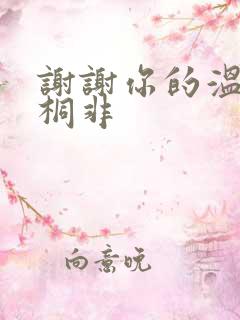 謝謝你的溫
桐非
向意晚